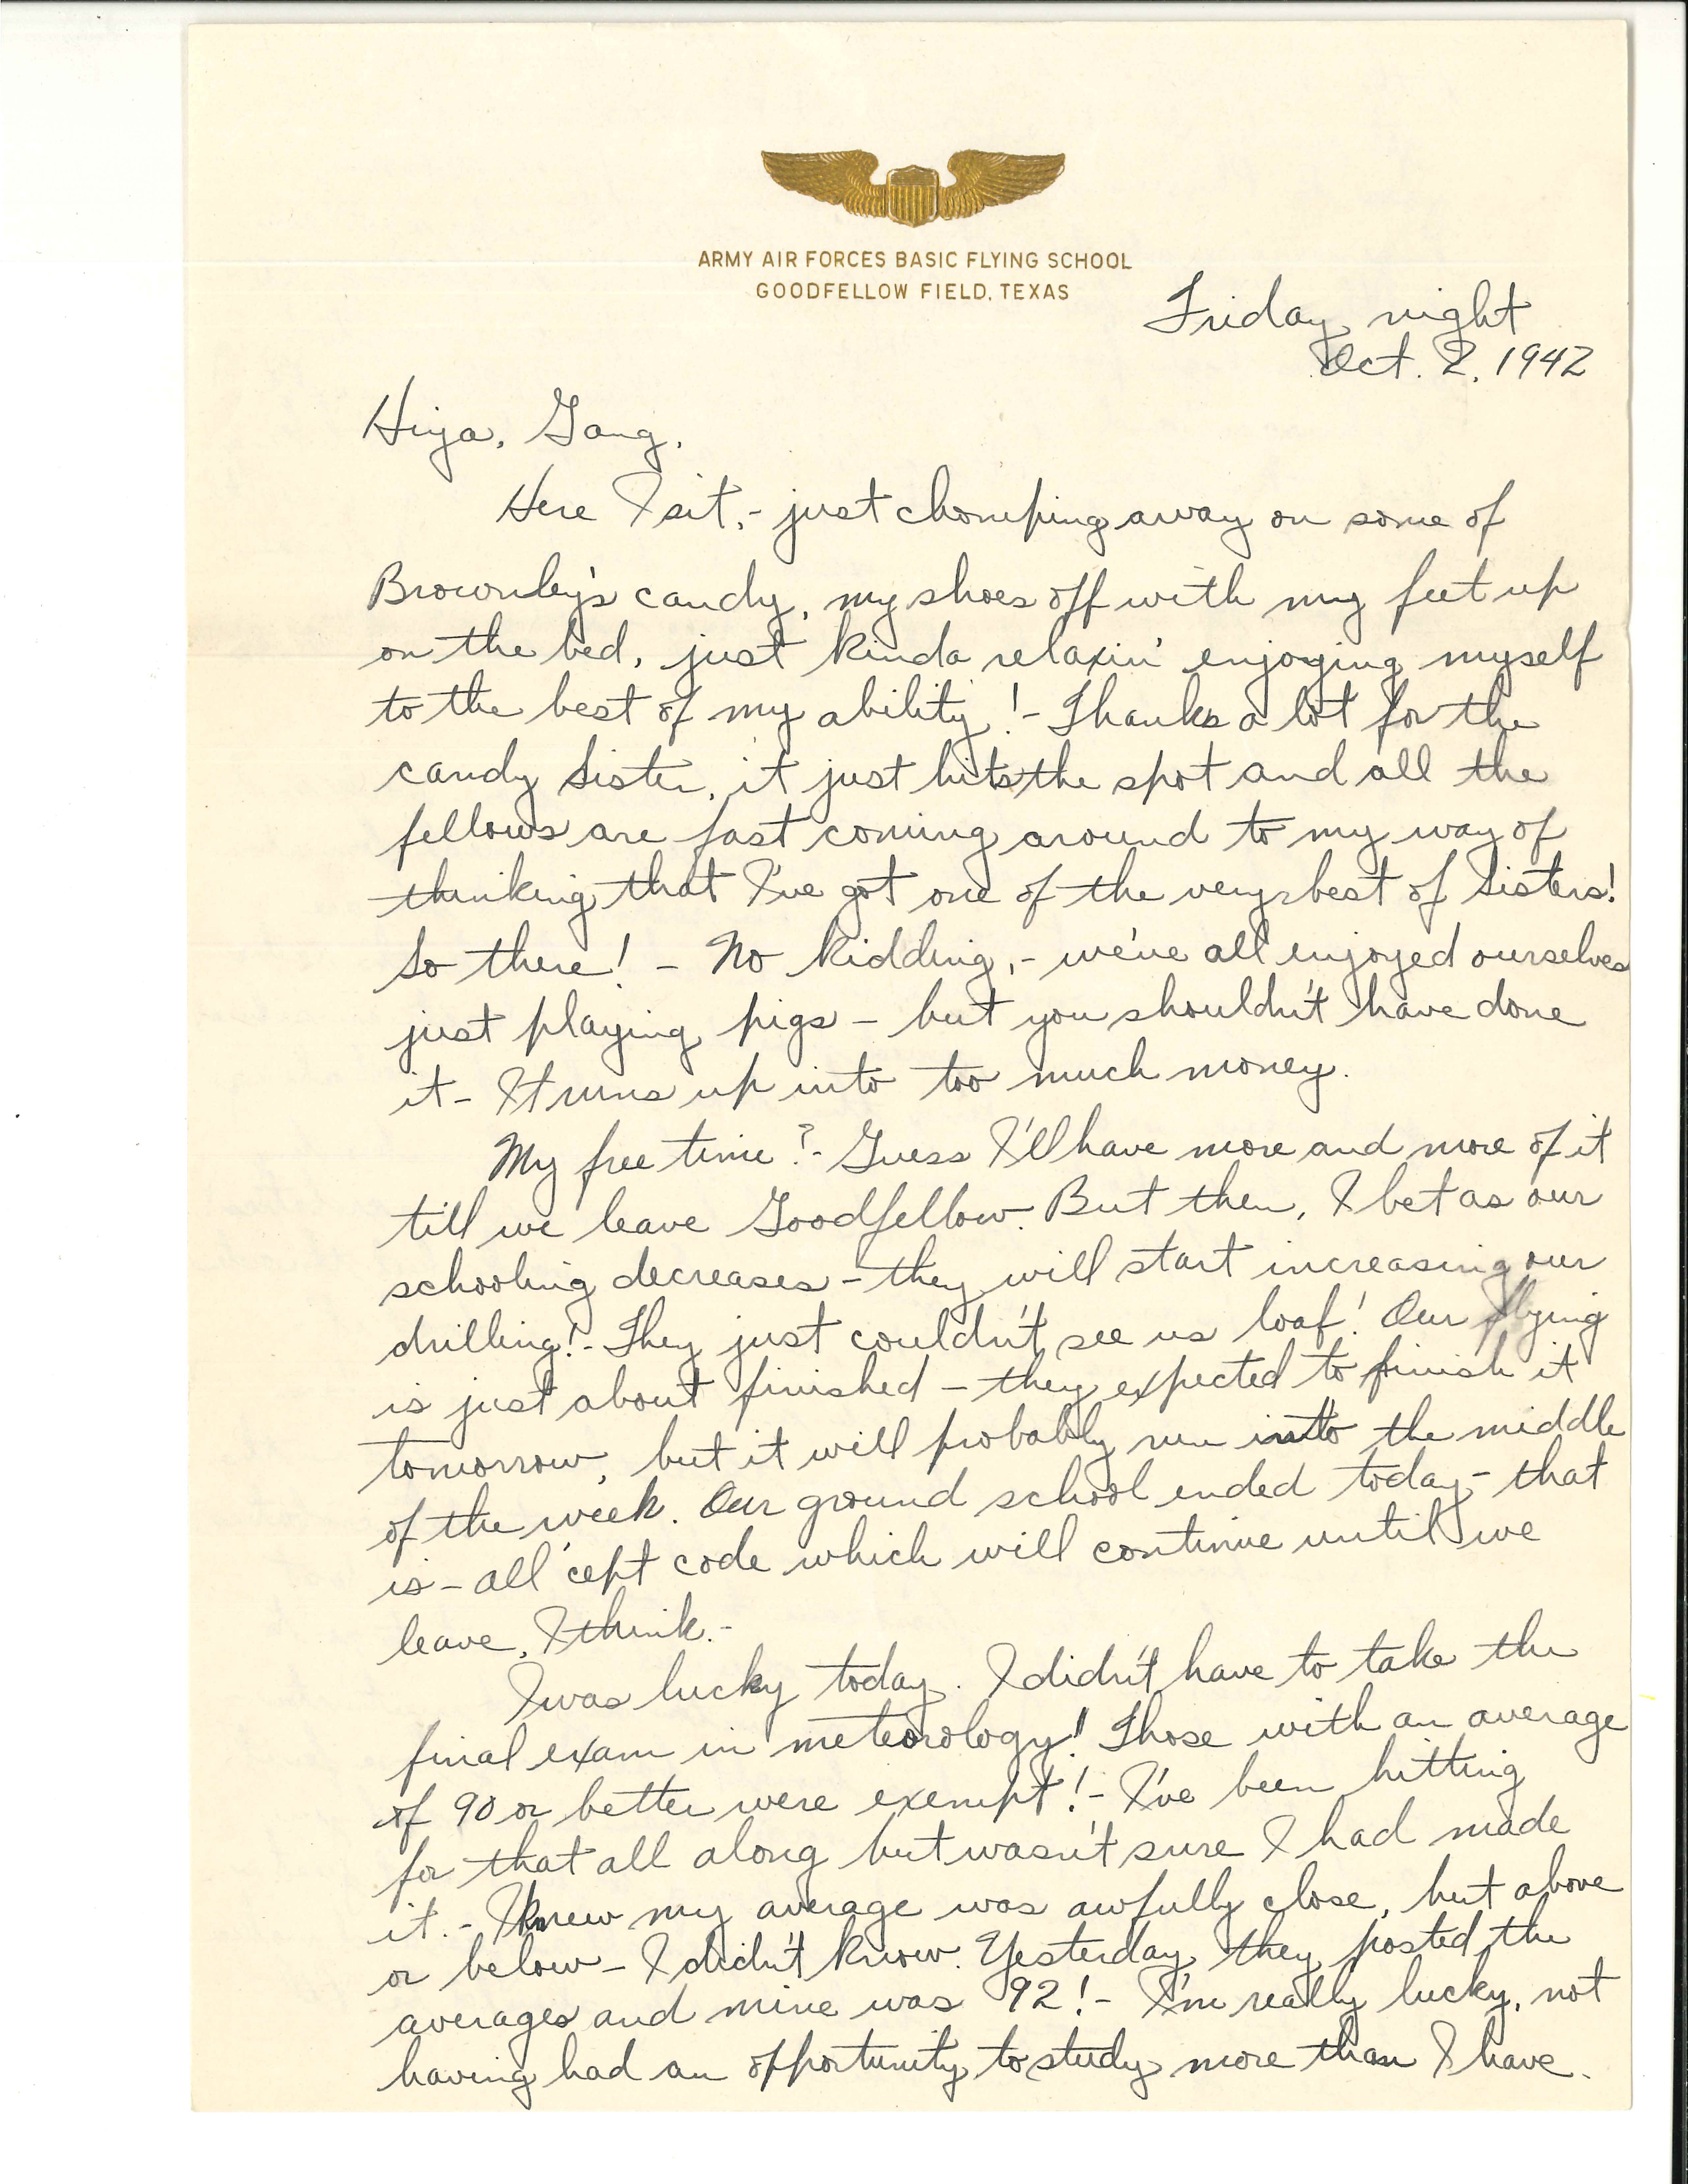 ARMY AIR FORCES BASIC FLYING SCHOOL
GOODFELLOW FIELD, TEXAS
Friday night
Oct. 2, 1942
Hiya, Gang,
Here I sit,- just chomping away on some of
Brownley's candy, my shoes off with my feet up
on the bed, just kinda relaxin' enjoying myself
to the best of my ability!- Thanks a lot for the
candy Sister, it just hits the spot and all the
fellows are fast coming around to my way of
thinking that I've got one of the very best of Sisters!
So there! - No kidding,- we've all enjoyed ourselves
just playing pigs - but you shouldn't have done
it - It runs up into too much money.
My free time?- Guess I'll have more and more of it
till we leave Goodfellow. But then, I bet as our
schooling decreases - they will start increasing our
drilling!- They just couldn't see us loaf! Our flying
is just about finished - they expected to finish it
tomorrow, but it will probably run into the middle
of the week. Our ground school ended today - that
is - all 'cept code which will continue until we
leave, I think.-
I was lucky today. I didn't have to take the
final exam in meteorology! Those with an average
of 90 or better were exempt!- I've been hitting
for that all along but wasn't sure I had made
it.- I knew my average was awfully close, but above
or below - I didn't know. Yesterday they posted the
averages and mine was 92!- I'm really lucky, not
having had an opportunity to study more than I have.